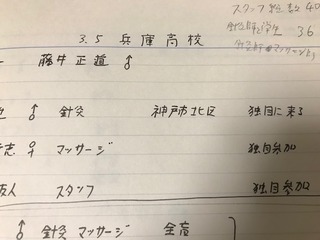 スタッフ 40
3.6
3.5 兵庫高校
藤井正道 ♂
♂ 針灸 神戸市北区 独自に来る
志 ♀ マッサージ 独自参加
友人 スタッフ 独自参加
♂ 針灸 マッサージ